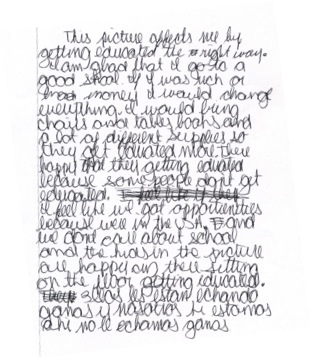 This picture affects me by
getting educated the right way.
I am glad that I go to a
good skool. If I was rich or
money I would change
everything. I would bring
chairs and tables books and
a lot of different supplies so
they get educated more. There
happy that they getting educated
because some people don't get
educated.
I feel like we got apportienties
because we'll in the USA. and
we don't care about school
and the kids in the picture
are happy in there sitting
on the floor getting educated.
ellos les estan echando
ganas y nosotros si estamos
a hi no le echamos ganas